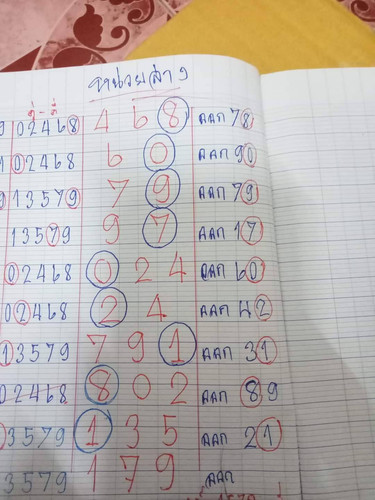 หน่วยล่าง
คู่-คี่
9 02468 4 6 8 ออก 78
1 02468 6 0 ออก 90
9 13579 7 9 ออก 79
13579 9 7 ออก 17
02468 0 2 4 ออก 60
02468 2 4 ออก 42
13579 7 9 1 ออก 31
02468 8 0 2 ออก 89
3579 1 3 5 ออก 21
3579 1 7 9 ออก